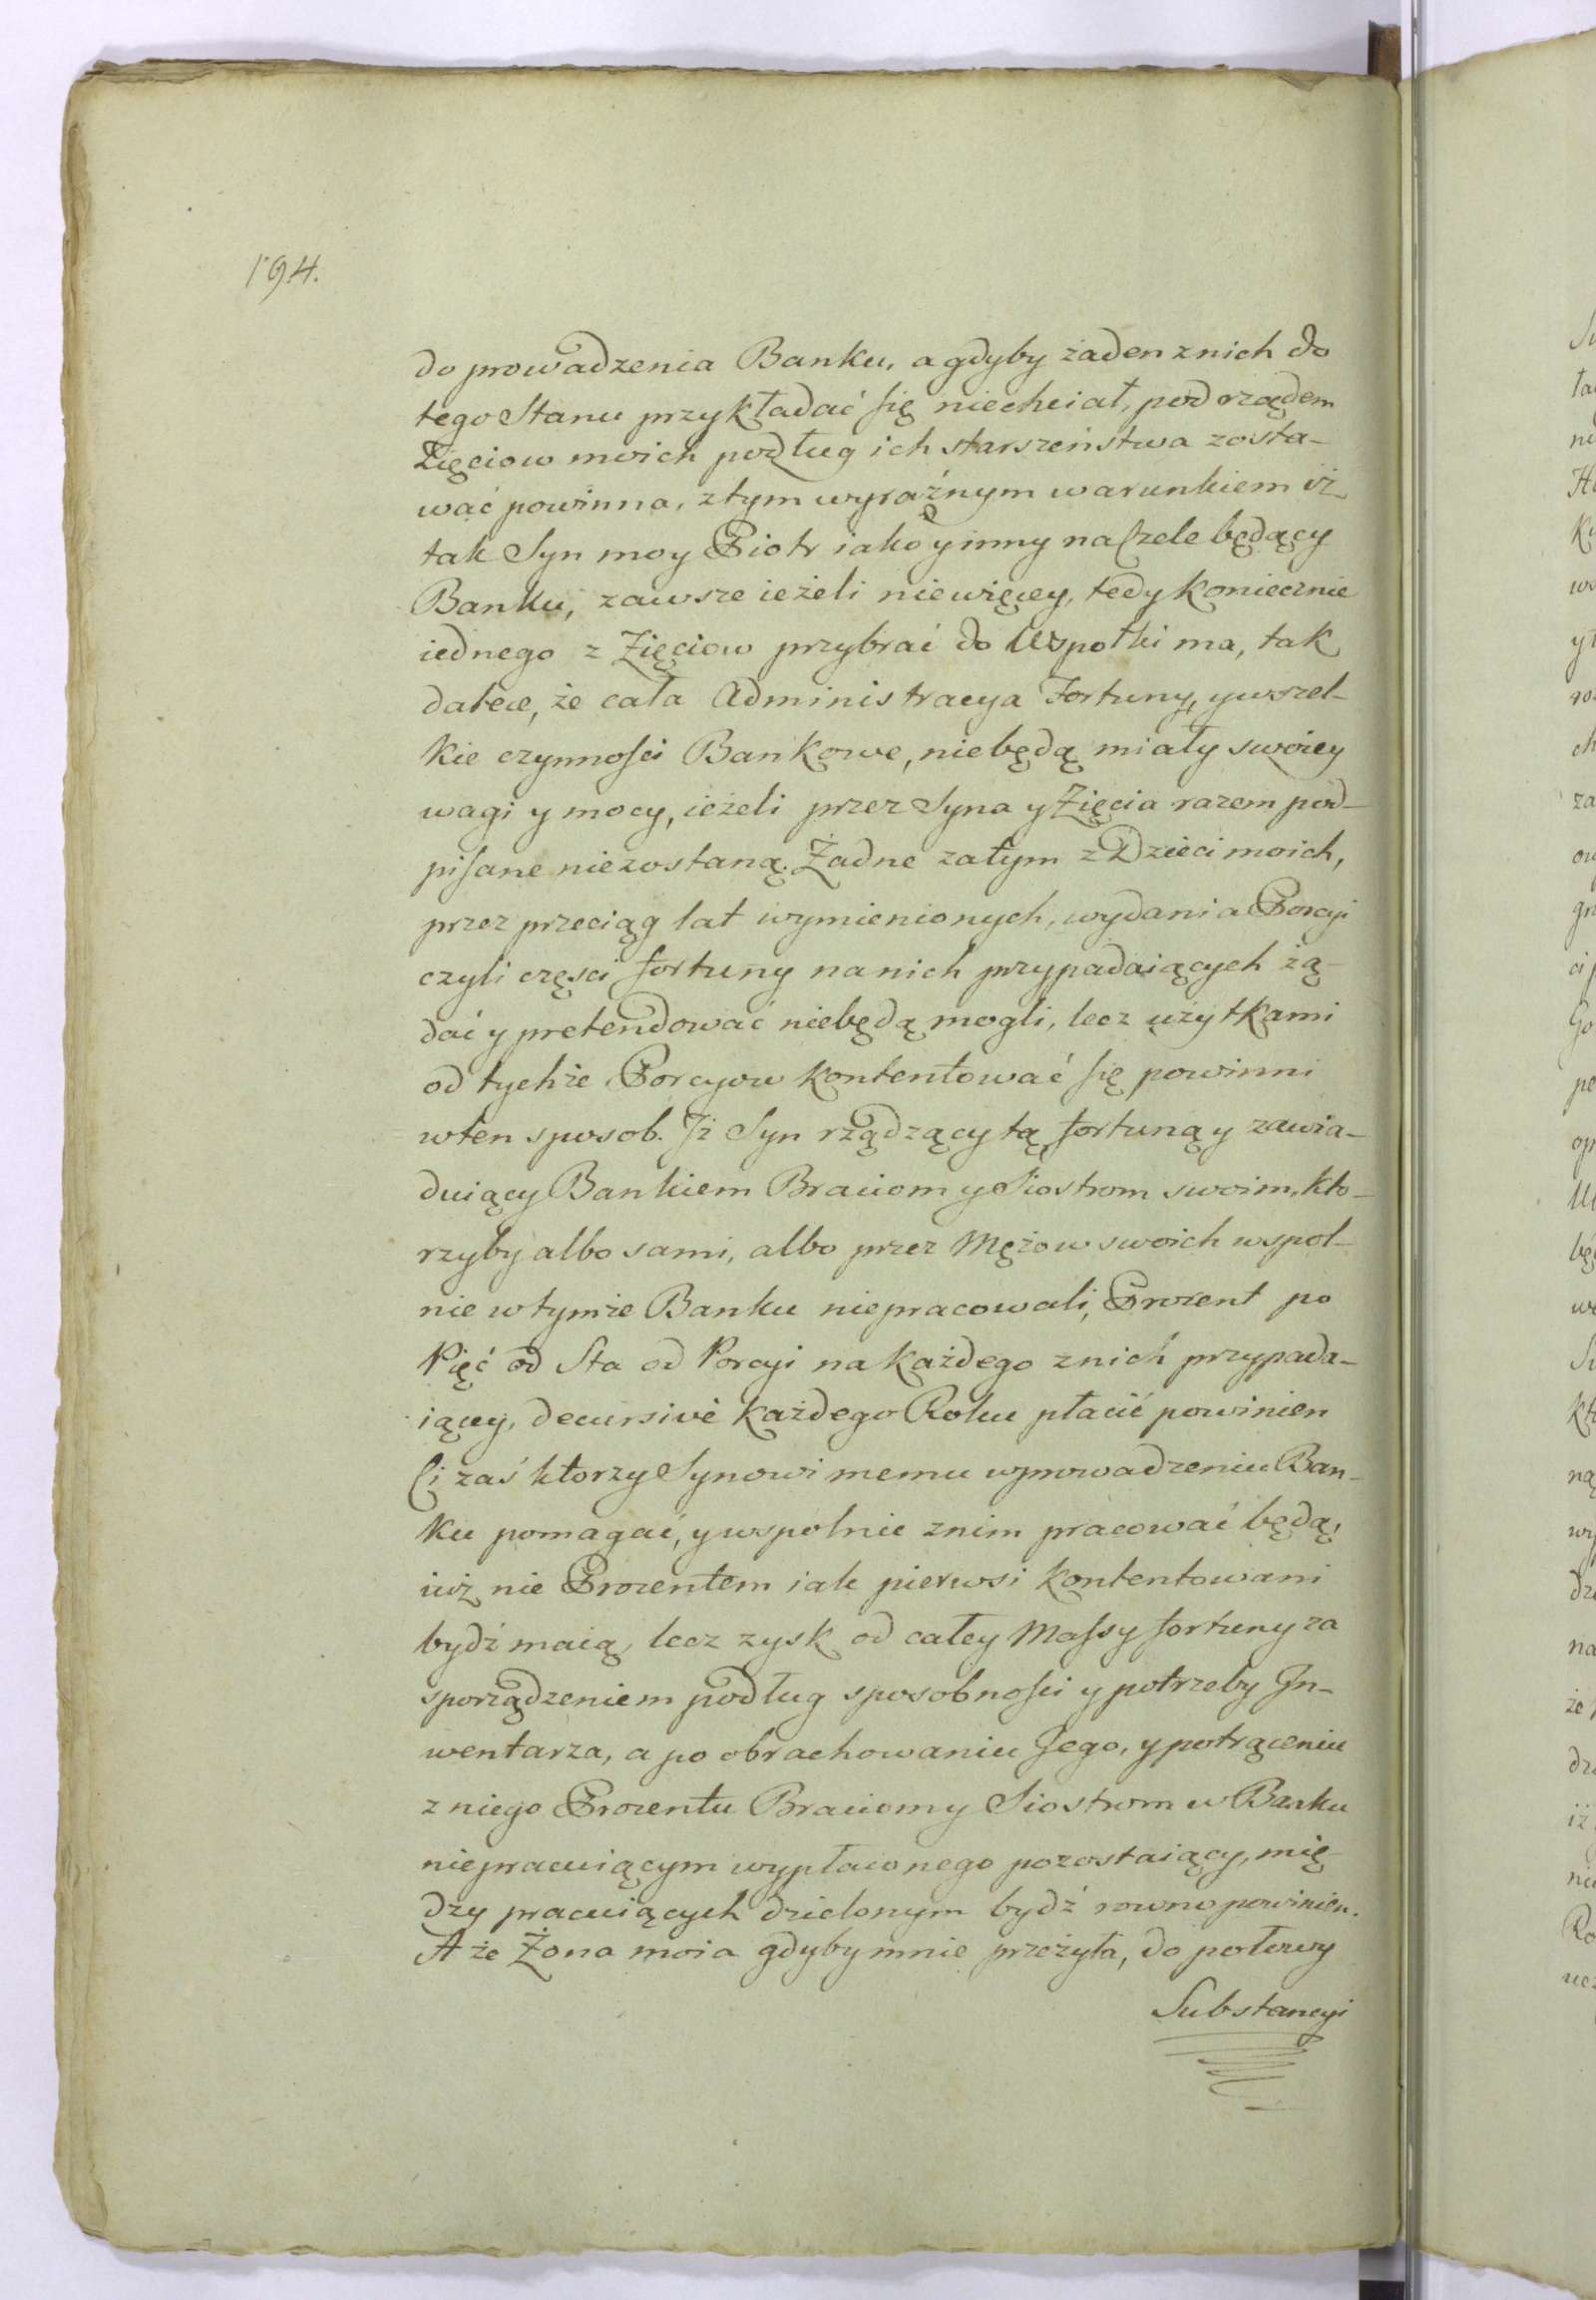 194.
do prowadzenia Banku, a gdyby żaden z nich do
tego Stanu przykładać się niechciał, pod rządem
Zięciow moich podług ich starszeństwa zosta-
wać powinna, z tym wyraźnym warunkiem iż
tak Syn moy Piotr iako y inny na Czele będący
Banku, zawsze ieżeli niewięcey, tedy koniecznie
iednego z Zięciow przybrać do Wspołki ma, tak
dalece, że cała Administracya Fortuny, y wszel-
kie czynności Bankowe, niebędą miały swoiey
wagi y mocy, ieżeli przez Syna y Zięcia razem pod-
pisane niezostaną. Żadne zatym z Dzieci moich,
przez przeciąg lat wymienionych, wydania Porcyi
czyli częsci fortuny na nich przypadaiących żą-
dać y pretendować niebędą mogli, lecz użytkami
od tychże Porcyow kontentować się powinni
w ten sposob. Iż Syn rządzący tą fortuną y zawia-
duiący Bankiem Braciom y Siostrom swoim, kto-
rzyby albo sami, albo przez Mężow swoich wspol-
nie w tymże Banku niepracowali, Procent po
Pięć od Sta od Porcyi na każdego z nich przypada-
iącey, decursivè każdego Roku płacić powinien
Ci zaś ktorzy Synowi memu w prowadzeniu Ban-
ku pomagać, y wspolnie z nim pracować będą,
iuż nie Procentem iak pierwsi kontentowani
bydź maią, lecz zysk od całey Massy fortuny za
sporządzeniem podług sposobności y potrzeby In-
wentarza, a po obrachowaniu Jego, y potrąceniu
z niego Procentu Braciom y Siostrom w Banku
niepracuiącym wypłaconego pozostaiący, mię-
dzy pracuiących dzielonym bydź rowno powinien.
A że Żona moia gdyby mnie przeżyła, do połowy
Substancyi